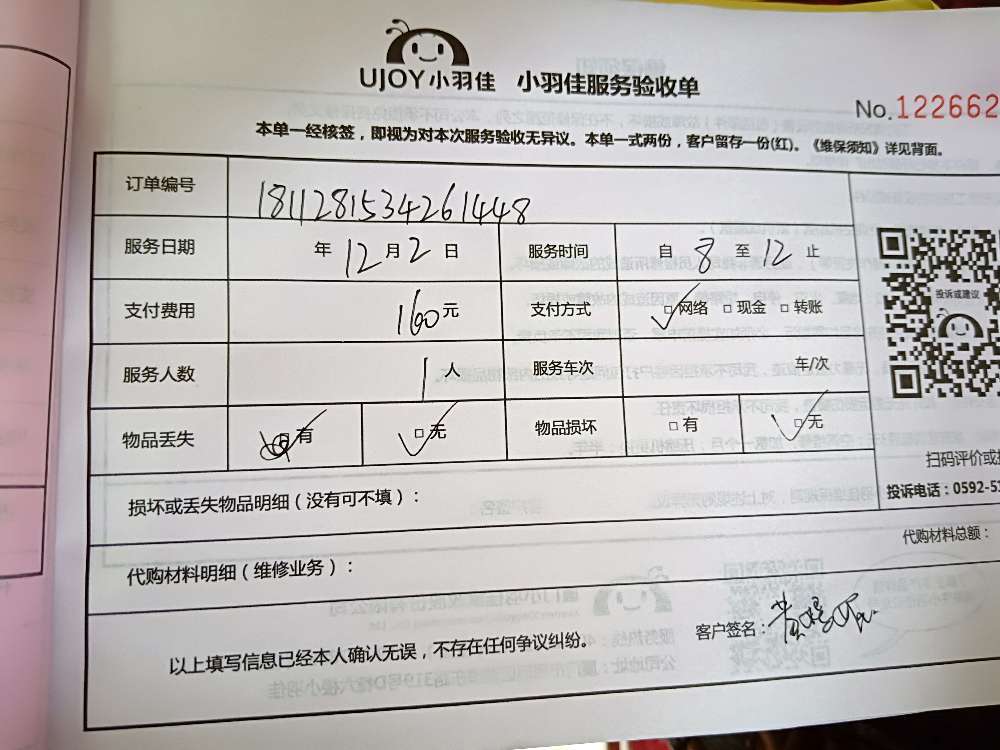 UJOY小羽佳 小羽佳服务验收单
No.122662
本单一经核签，即视为对本次服务验收无异议。本单一式两份，客户留存一份(红)。《维保须知》详见背面。
订单编号 1811281534261448
服务日期 年 12 月 2 日 服务时间 自 8 至 12 止
支付费用 160元 支付方式 □网络 □现金 □转账
服务人数 1人 服务车次 车/次
物品丢失 □有 □无 物品损坏 □有 □无
投诉或建议
扫码评价或
投诉电话：0592-51
损坏或丢失物品明细（没有可不填）：
代购材料总额：
代购材料明细（维修业务）：
客户签名：
以上填写信息已经本人确认无误，不存在任何争议纠纷。